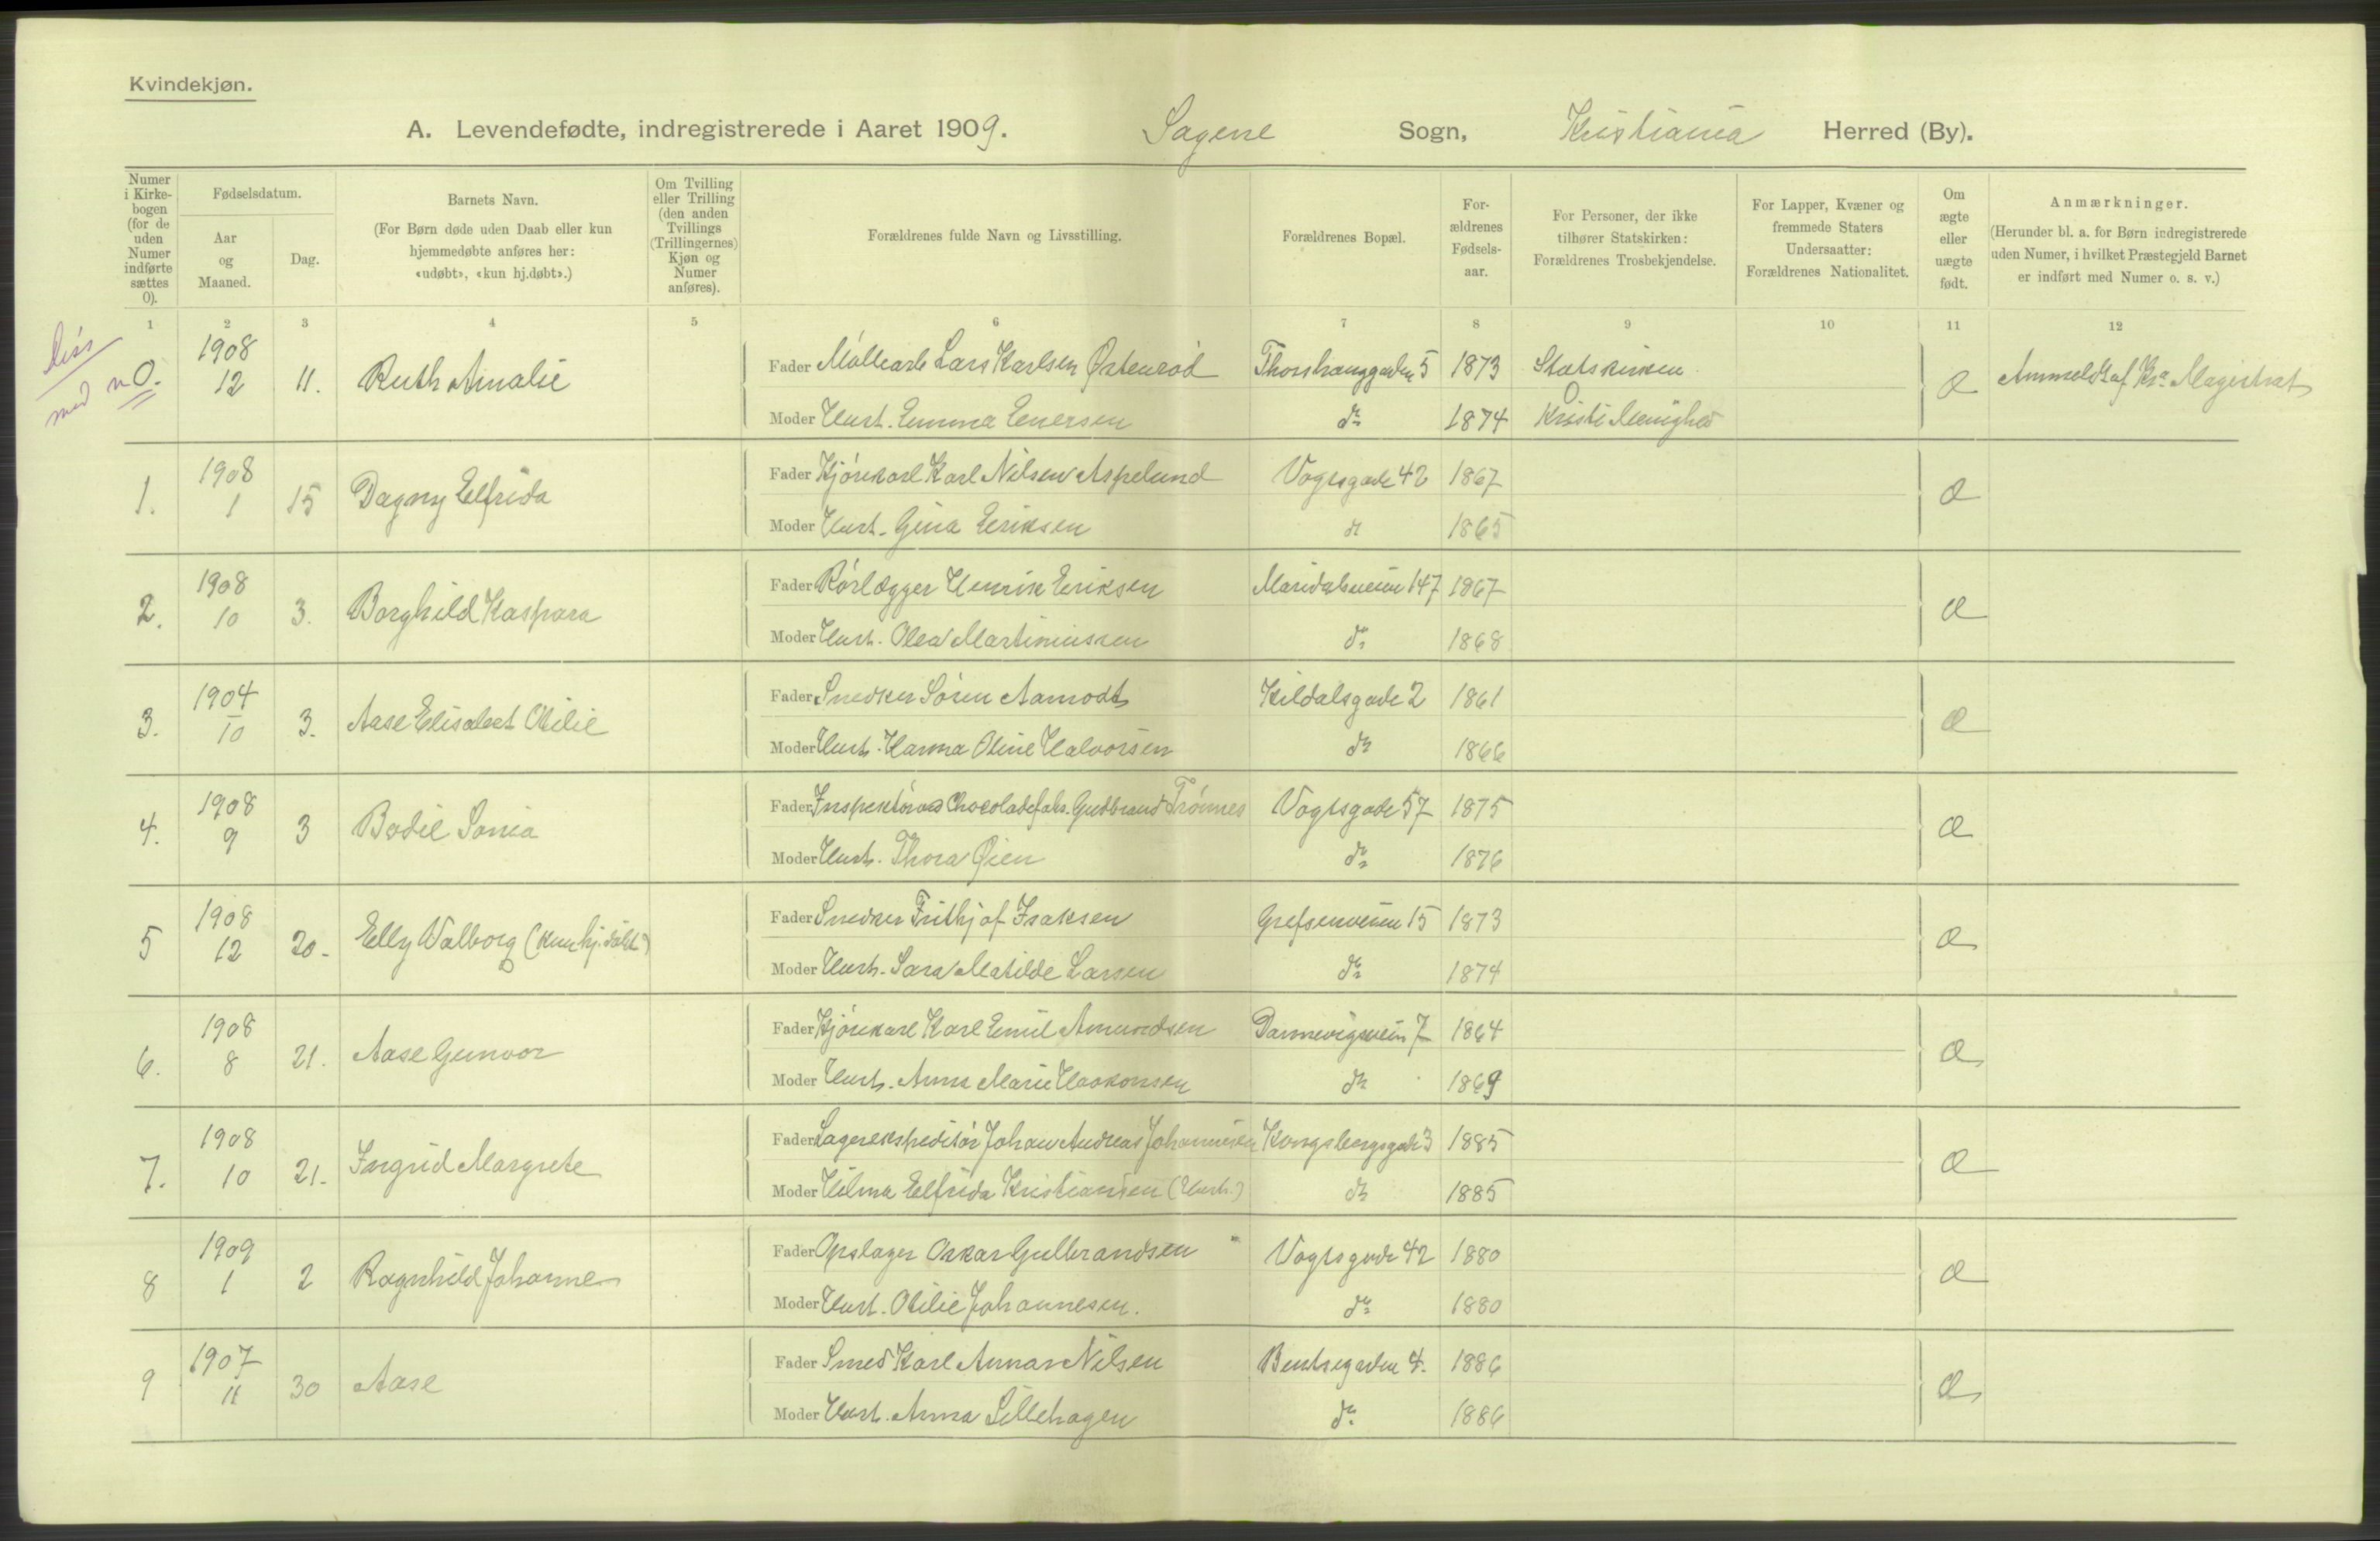 Kvindekjøn.
A. Levendefødte, indregistrerede i Aaret 1909. Sagene Sogn, Kristiania Herred (By).
Numer i Kirkebogen (for de uden Numer indførte sættes 0).
Fødselsdatum.
Aar og Maaned.
Dag.
Barnets Navn.
(For Børn døde uden Daab eller kun hjemmedøbte anføres her: «udøbt», «kun hj.døbt».)
Om Tvilling eller Trilling (den anden Tvillings (Trillingernes) Kjøn og Numer anføres).
Forældrenes fulde Navn og Livsstilling.
Forældrenes Bopæl.
Forældrenes Fødselsaar.
For Personer, der ikke tilhører Statskirken: Forældrenes Trosbekjendelse.
For Lapper, Kvæner og fremmede Staters Undersaatter: Forældrenes Nationalitet.
Om ægte eller uægte født.
Anmærkninger.
(Herunder bl. a. for Børn indregistrerede uden Numer, i hvilket Præstegjeld Barnet er indført med Numer o. s. v.)
1 2 3 4 5 6 7 8 9 10 11 12
diss
med n 0. 1908 12 11. Ruth Amalie
Fader Møllearb Lars Karlsen Østenrød Thorshauggaden 5 1873 Statskirken
Moder Hust. Emma Enersen do 1874 Kristi Menighed
Æ Anmeldt af Kra Magistrat
1. 1908 1 15 Dagny Elfrida
Fader Kjørekarl Karl Nilsen Aspelund Vogtsgade 42 1867
Moder Hust. Gina Eriksen do 1865
Æ
2. 1908 10 3. Borghild Kaspara
Fader Rørlægger Henrik Eriksen Maridalsveien 147 1867
Moder Hust. Olea Martiniussen do 1868
Æ
3. 1904 10 3. Aase Elisabet Otilie
Fader Snedker Søren Aamodt Kildalsgade 2 1861
Moder Hust. Hanna Oline Halvorsen do 1866
Æ
4. 1908 9 3 Bodil Sonia
Fader Inspektør ved Chocoladefabr. Gudbrand Trønnes Vogtsgade 57 1875
Moder Hust. Thora Øien do 1876
Æ
5 1908 12 20. Elly Valborg (kun hj.døbt)
Fader Snedker Frithjof Isaksen Grefsenveien 15 1873
Moder Hust. Sara Matilde Larsen do 1874
Æ
6. 1908 8 21. Aase Gunvor
Fader Kjørekarl Karl Emil Amundsen Dannevigsveien 7 1864
Moder Hust. Anna Marie Haakonsen do 1869
Æ
7. 1908 10 21. Ingrid Margrete
Fader Lagerekspeditør Johan Andreas Johannesen Kongsbergsgade 3 1885
Moder Hilma Elfrida Kristiansen (Hust.) do 1885
Æ
8 1909 1 2 Ragnhild Johanne
Fader Opslager Oskar Gulbrandsen Vogtsgade 42 1880
Moder Hust. Otilie Johannesen. do 1880
Æ
9 1907 11 30 Aase
Fader Smed Karl Annar Nilsen Bentsegaden 4. 1886
Moder Hust. Anna Sillehagen do 1886
Æ